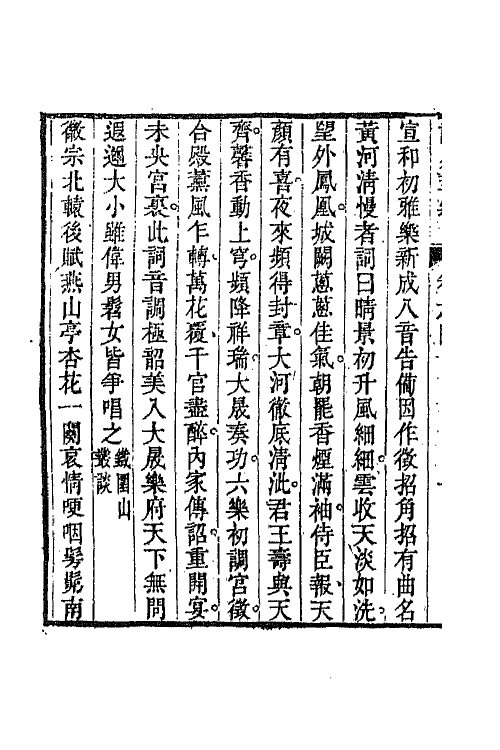 宣和初雅樂新成八音告備因作徵招角招有曲名
黃河清慢者詞曰晴景初升風細細雲收天淡如洗。
望外鳳凰城闕蔥蔥佳氣。朝罷香煙滿袖、侍臣報、天
顏有喜。夜來頻得封章、大河徹底清泚。君王壽與天
齊。馨香動上穹、頻降祥瑞。大晟奏功、六樂初調宮徵。
合殿薰風乍轉、萬花覆、千官盡醉。內家傳詔重開宴。
未央宮裏。此詞音調極韶美入大晟樂府天下無問
遐邇大小雖偉男髫女皆爭唱之鐵圍山叢談
徽宗北轅後賦燕山亭杏花一闋哀情哽咽髣髴南